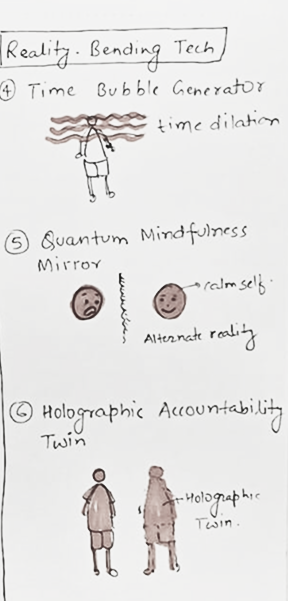 Reality. Bending Tech
④ Time Bubble Generator
time dilation
⑤ Quantum Mindfulness
Mirror
calm self.
Alternate reality
⑥ Holographic Accountability
Twin
Holographic
Twin.